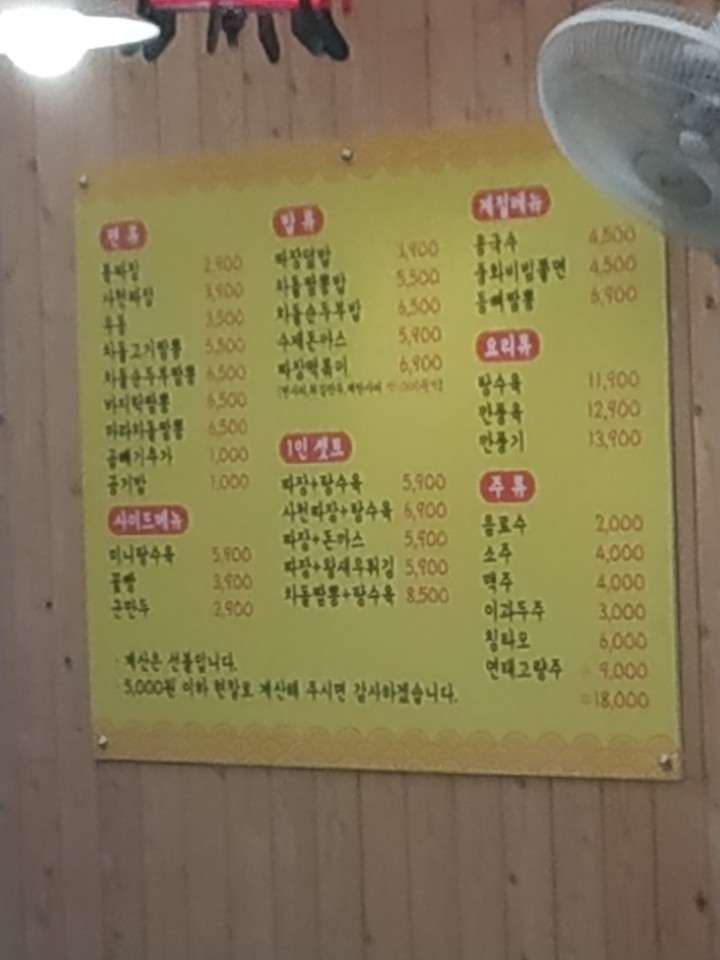 면 류
불짜장 2,900
사천짜장 3,900
우동 3,500
차돌고기짬뽕 5,500
차돌순두부짬뽕 6,500
바지락짬뽕 6,500
마라차돌짬뽕 6,500
곱빼기추가 1,000
공기밥 1,000
사이드메뉴
미니탕수육 5,900
꽃빵 3,900
군만두 2,900
밥 류
짜장덮밥 3,900
차돌짬뽕밥 5,500
차돌순두부밥 6,500
수제돈까스 5,900
짜장떡볶이 6,900
1인 셋트
짜장+탕수육 5,900
사천짜장+탕수육 6,900
짜장+돈까스 5,900
짜장+왕새우튀김 5,900
차돌짬뽕+탕수육 8,500
계절메뉴
콩국수 4,500
중화비빔쫄면 4,500
등뼈짬뽕 6,900
요리류
탕수육 11,900
깐풍육 12,900
깐풍기 13,900
주 류
음료수 2,000
소주 4,000
맥주 4,000
이과두주 3,000
칭타오 6,000
연태고량주 9,000
18,000
· 계산은 선불입니다.
· 5,000원 이하 현찰로 계산해 주시면 감사하겠습니다.